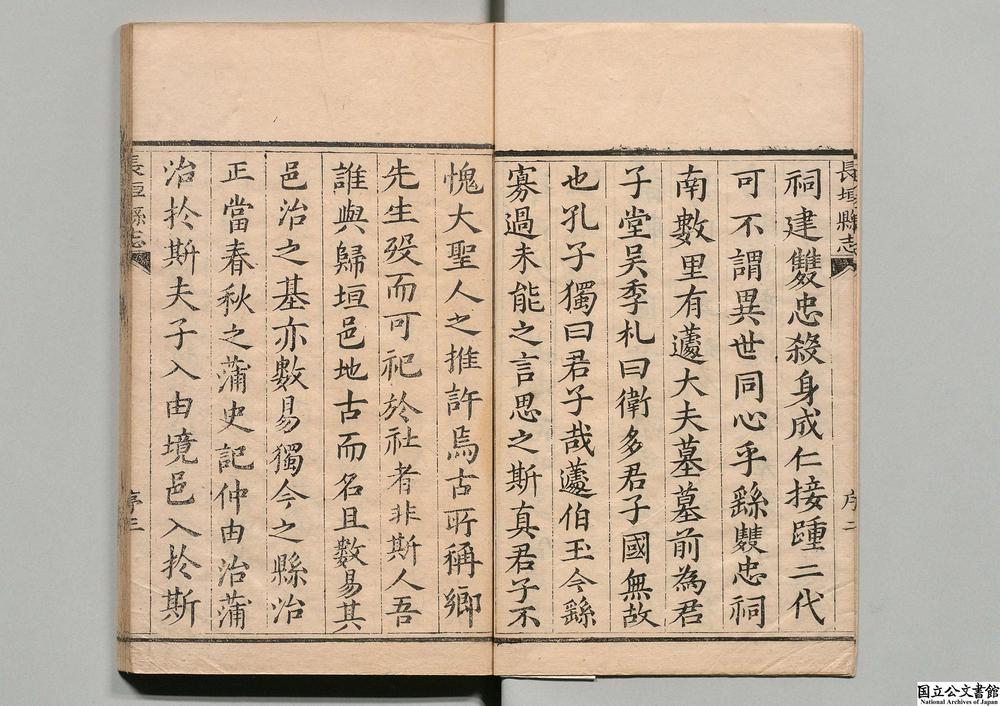 長垣縣志
序二
祠建雙忠殺身成仁接踵二代
可不謂異世同心乎繇雙忠祠
南數里有蘧大夫墓墓前為君
子堂吴季札曰衛多君子國無故
也孔子獨曰君子哉蘧伯玉今繇
寡過未能之言思之斯真君子不
愧大聖人之推許焉古所稱鄉
先生歿而可祀於社者非斯人吾
誰與歸垣邑地古而名且數易其
邑治之基亦數易獨今之縣治
正當春秋之蒲史記仲由治蒲
治扵斯夫子入由境邑入扵斯
長垣縣志
序三
国立公文書館
National Archives of Japan